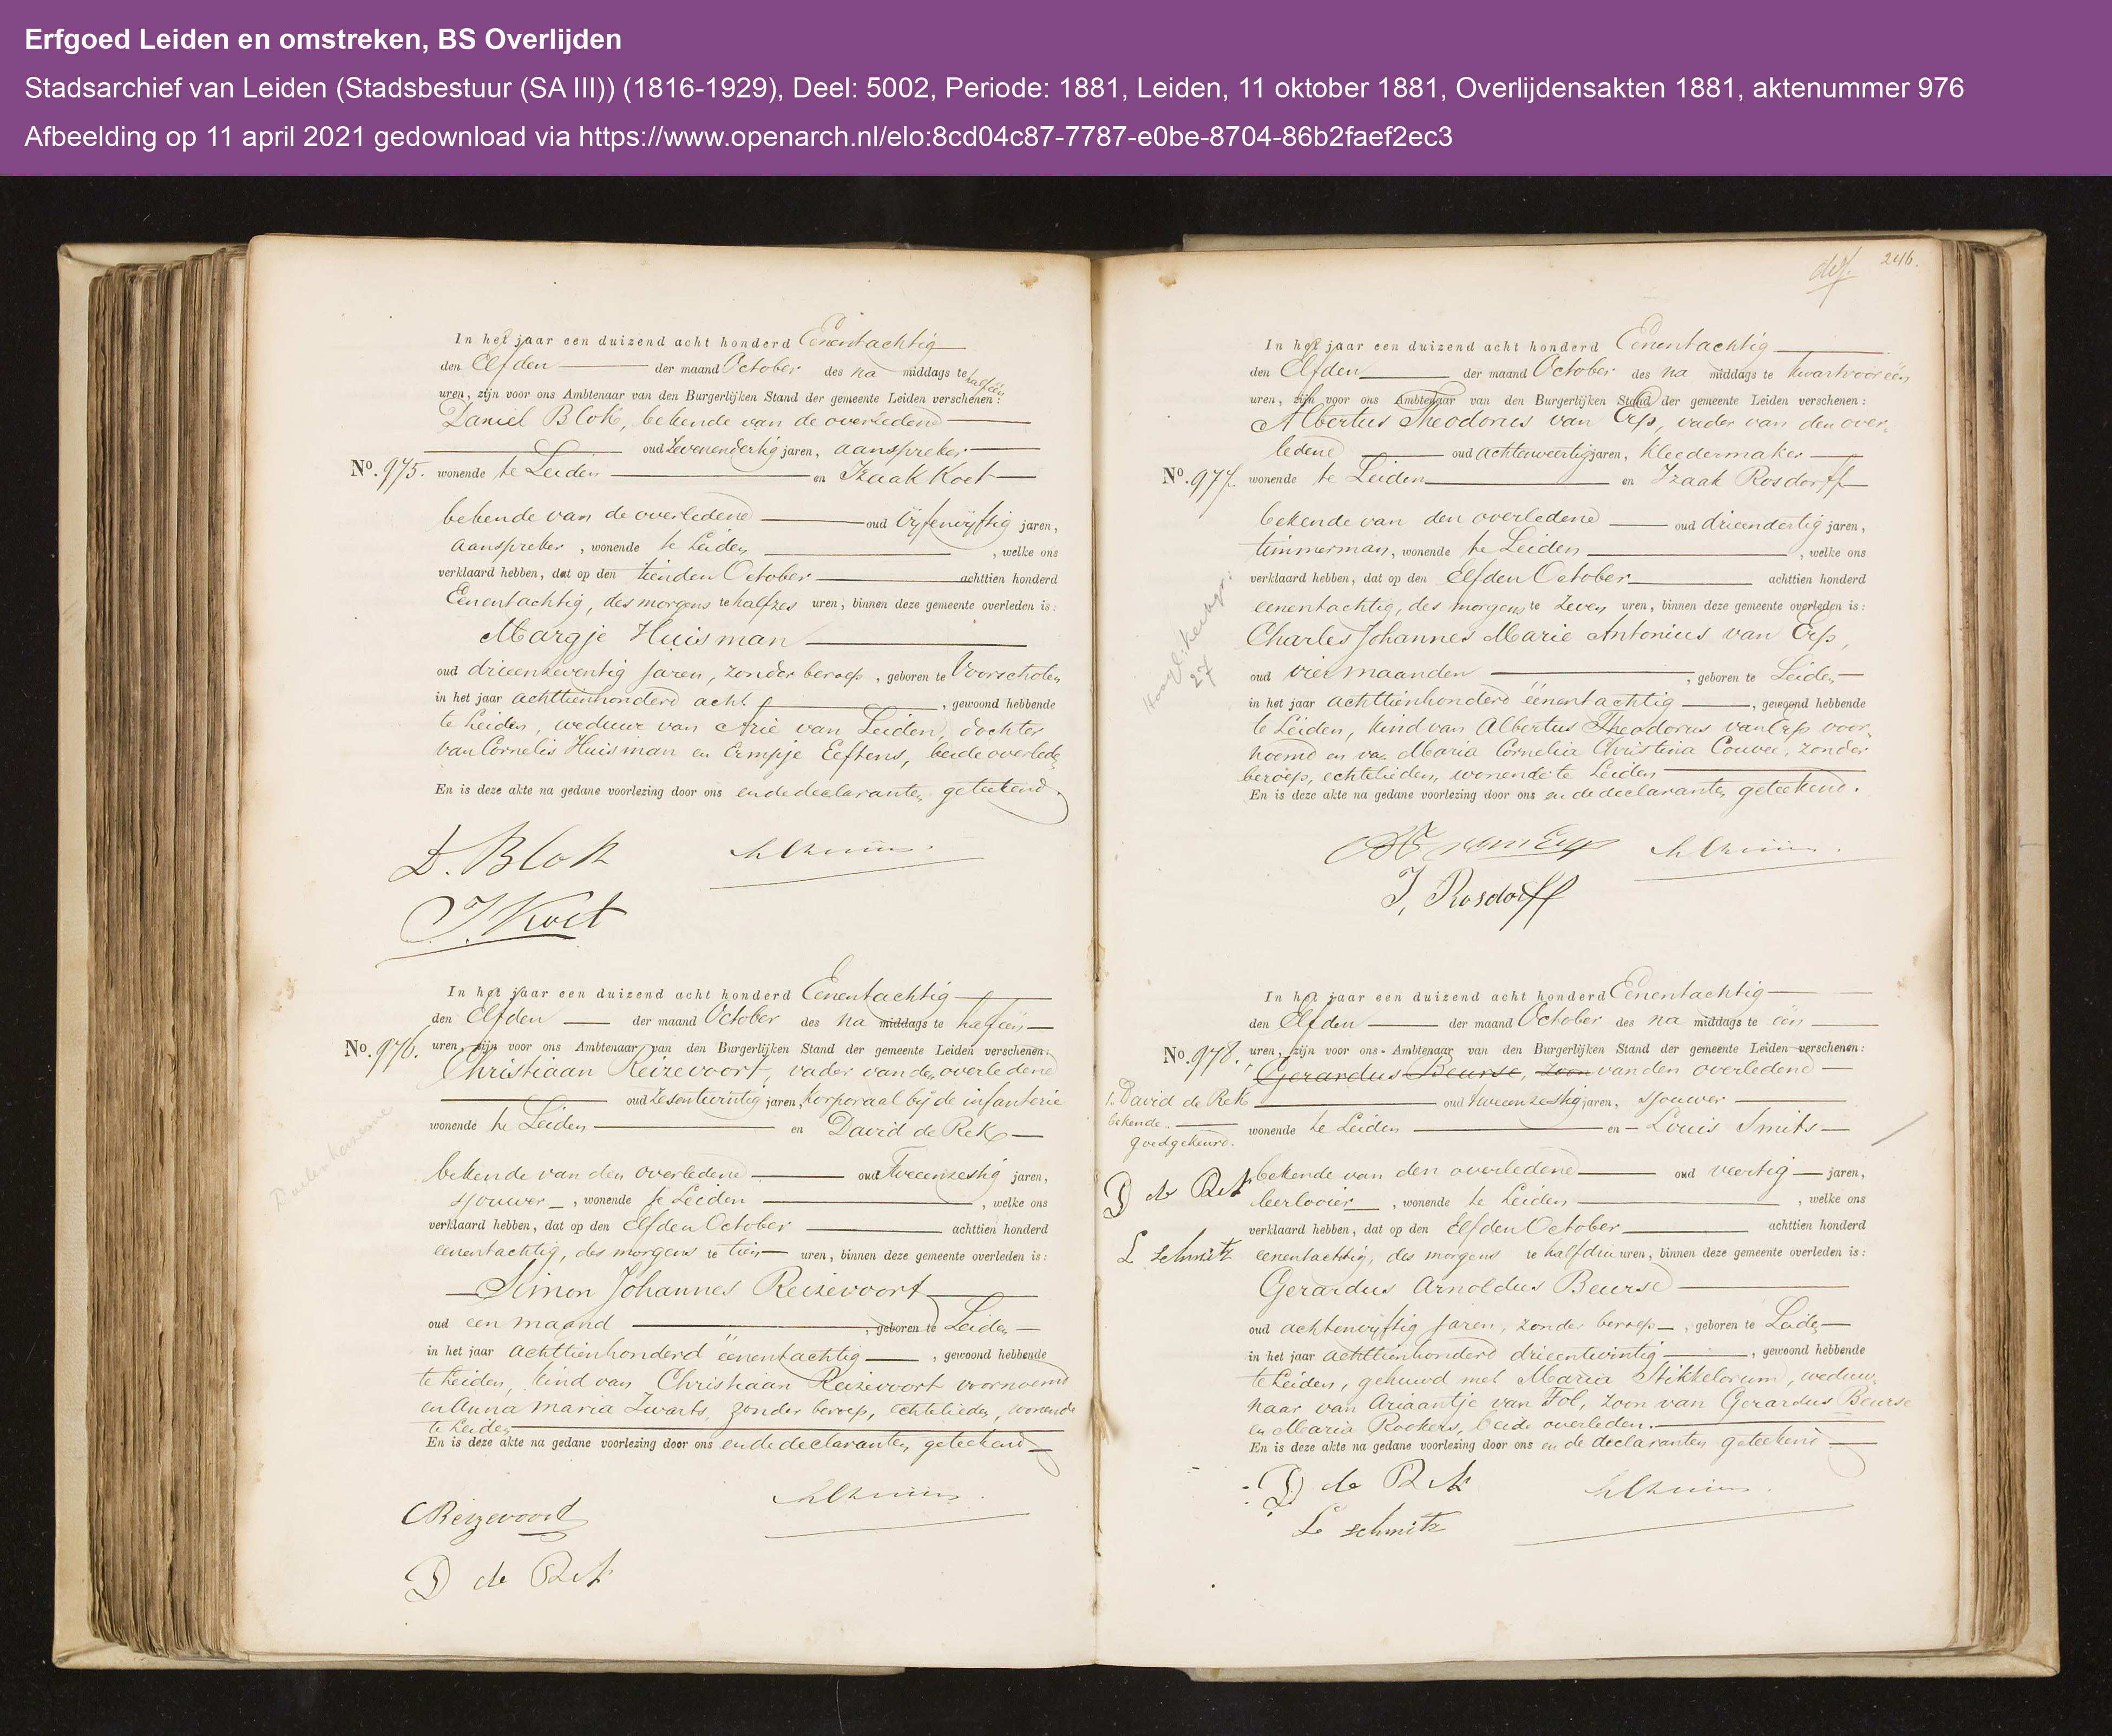 Erfgoed Leiden en omstreken, BS Overlijden
Stadsarchief van Leiden (Stadsbestuur (SA III)) (1816-1929), Deel: 5002, Periode: 1881, Leiden, 11 oktober 1881, Overlijdensakten 1881, aktenummer 976
Afbeelding op 11 april 2021 gedownload via https://www.openarch.nl/elo:8cd04c87-7787-e0be-8704-86b2faef2ec3
In het jaar een duizend acht honderd Eenentachtig
den Elfden der maand October des na middags te halfeen
uren, zijn voor ons Ambtenaar van den Burgerlijken Stand der gemeente Leiden verschenen:
Daniel Blok, bekende van de overledene
oud Zevenendertig jaren, aanspreker
No. 975. wonende te Leiden en Izaak Koet
bekende van de overledene oud Vyfenvyftig jaren,
aanspreker, wonende te Leiden, welke ons
verklaard hebben, dat op den tienden October achttien honderd
Eenentachtig, des morgens te halfzes uren, binnen deze gemeente overleden is:
Margje Huisman
oud drieenzeventig jaren, zonder beroep, geboren te Voorschoten
in het jaar achttienhonderd acht, gewoond hebbende
te Leiden, weduwe van Arie van Leiden, dochter
van Cornelis Huisman en Ermpje Eeftens, beide overleden
En is deze akte na gedane voorlezing door ons en de declaranten geteekend.
D. Blok
I. Koet
In het jaar een duizend acht honderd Eenentachtig
den Elfden der maand October des na middags te halfeen
No. 976. uren, zijn voor ons Ambtenaar van den Burgerlijken Stand der gemeente Leiden verschenen:
Christiaan Reizevoort, vader van den overledene
oud Zesentwintig jaren, Korporaal bij de infanterie
wonende te Leiden en David de Rek
bekende van den overledene oud Tweeenzestig jaren,
sjouwer, wonende te Leiden, welke ons
verklaard hebben, dat op den Elfden October achttien honderd
eenentachtig, des morgens te tien uren, binnen deze gemeente overleden is:
Simon Johannes Reizevoort
oud een maand, geboren te Leiden
in het jaar achttienhonderd éénentachtig, gewoond hebbende
te Leiden, kind van Christiaan Reizevoort voornoemd
en Anna Maria Zwarts, zonder beroep, echtelieden, wonende
te Leiden
En is deze akte na gedane voorlezing door ons en de declaranten geteekend
CReizevoort
D de Rek
246.
In het jaar een duizend acht honderd Eenentachtig
den Elfden der maand October des na middags te kwartvoor een
uren, zijn voor ons Ambtenaar van den Burgerlijken Stand der gemeente Leiden verschenen:
Albertus Theodorus van Erp, vader van den over-
ledene oud achtenveertig jaren, Kleedermaker
No. 977. wonende te Leiden en Izaak Rosdorff
bekende van den overledene oud drieendertig jaren,
timmerman, wonende te Leiden, welke ons
verklaard hebben, dat op den Elfden October achttien honderd
eenentachtig, des morgens te Zeven uren, binnen deze gemeente overleden is:
Charles Johannes Marie Antonius van Erp,
oud vier maanden, geboren te Leiden
in het jaar achttienhonderd éénentachtig, gewoond hebbende
te Leiden, kind van Albertus Theodorus van Erp voor-
noemd en van Maria Cornelia Christina Couvee, zonder
beroep, echtelieden, wonende te Leiden
En is deze akte na gedane voorlezing door ons en de declaranten geteekend.
27
I. Rosdorff
In het jaar een duizend acht honderd Eenentachtig
den Elfden der maand October des na middags te één
No. 978. uren, zijn voor ons Ambtenaar van den Burgerlijken Stand der gemeente Leiden verschenen:
Gerardus Beurse, zoon van den overledene
oud tweeenzestig jaren, sjouwer
wonende te Leiden en Louis Smits
David de Rek
bekende
goedgekeurd.
D de Rek
L schmitz
bekende van den overledene oud veertig jaren,
leerlooier, wonende te Leiden, welke ons
verklaard hebben, dat op den Elfden October achttien honderd
eenentachtig, des morgens te halfdrie uren, binnen deze gemeente overleden is:
Gerardus Arnoldus Beurse
oud achtenvyftig jaren, zonder beroep, geboren te Leiden
in het jaar achttienhonderd drieentwintig, gewoond hebbende
te Leiden, gehuwd met Maria Stikkelorum, weduw-
naar van Ariaantje van Tol, zoon van Gerardus Beurse
en Maria Rookers, beide overleden.
En is deze akte na gedane voorlezing door ons en de declaranten geteekend
D de Rek
L schmitz